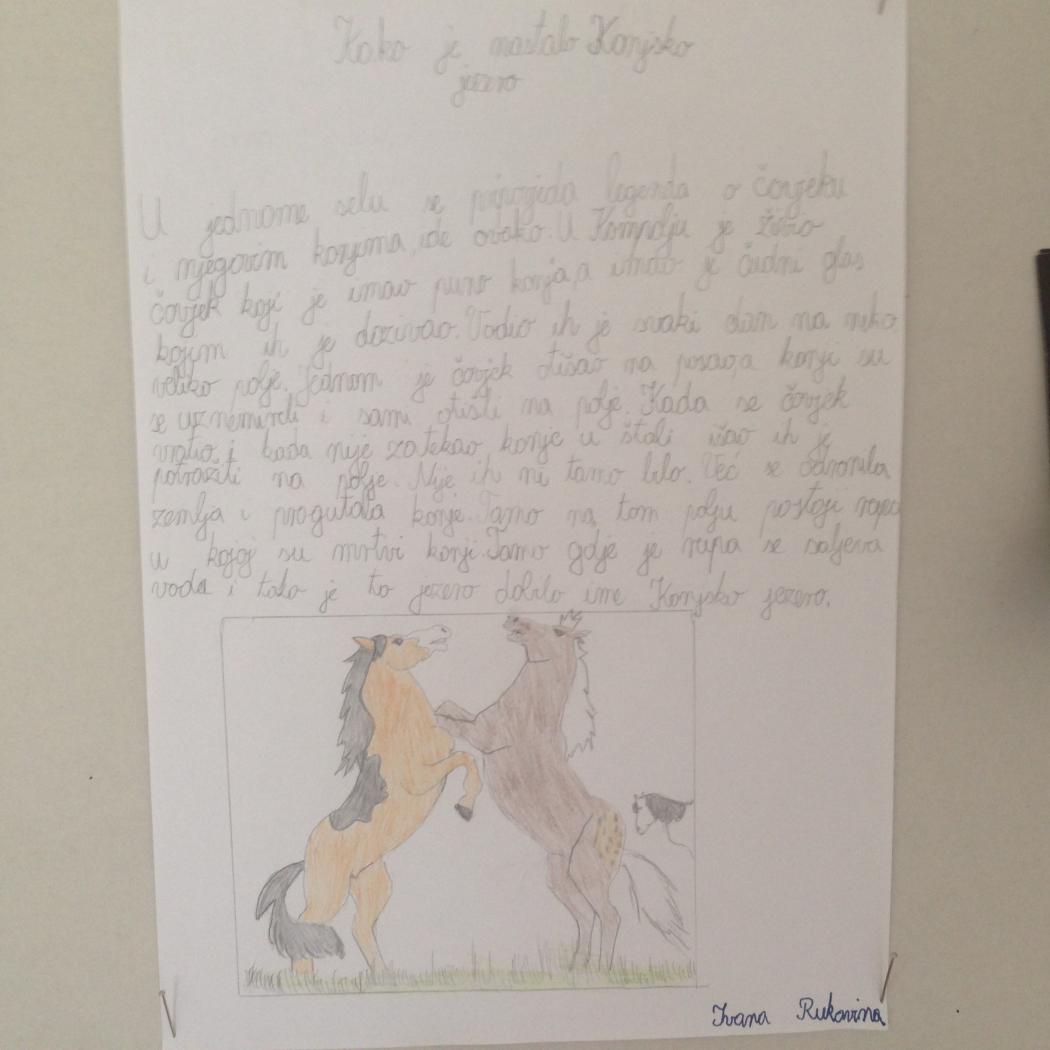 Kako je nastalo Konjsko
jezero
U jednome selu se pripovjeda legenda o čovjeku
i njegovim konjima, ide ovako. U Kompolju je živio
čovjek koji je imao puno konja, a imao je čudni glas
kojim ih je dozivao. Vodio ih je svaki dan na neko
veliko polje. Jednom je čovjek otišao na posao, a konji su
se uznemirili i sami otišli na polje. Kada se čovjek
vratio i kada nije zatekao konje u štali išao ih je
potražiti na polje. Nije ih ni tamo bilo. Već se odronila
zemlja i progutala konje. Tamo na tom polju postoji rupa
u kojoj su mrtvi konji. Tamo gdje je rupa se saljeva
voda i tako je to jezero dobilo ime Konjsko jezero.
Ivana Rukavina